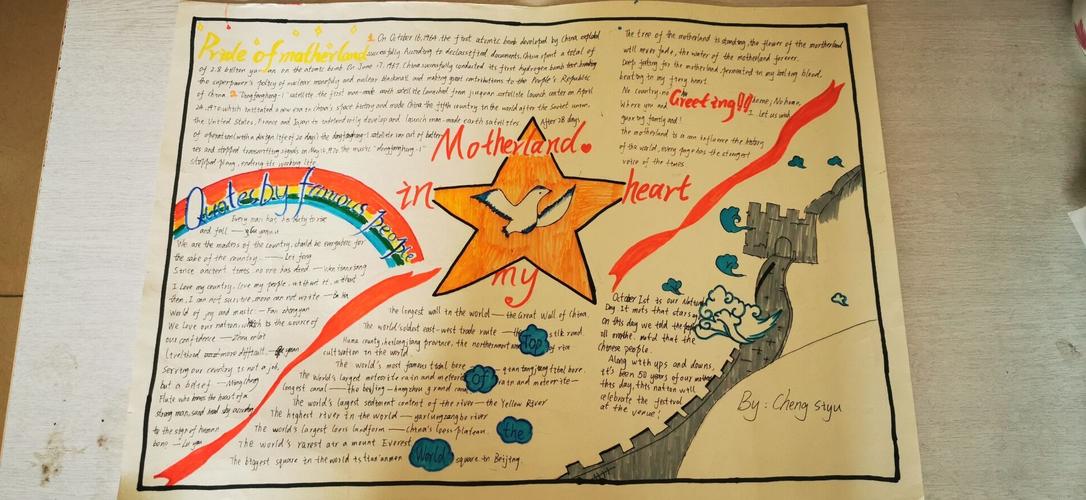 Pride of motherland
1. On October 16, 1964, the first atomic bomb developed by China, explod
successfully. According to declassified documents, China spent a total of
of 2.8 billion yuan on the atomic bomb. On June 17, 1967, China successfully conducted its first hydrogen bomb
the superpower's policy of nuclear monopoly and nuclear blackmail, and making great contributions to the People's Republic
of China. 2. "Dongfanghong-1" satellite, the first man-made earth satellite launched from jiuquan satellite launch center on April
24, 1970, which initiated a new era in China's space history and made China the fifth country in the world after the Soviet union,
the United States, France and Japan to independently develop and launch man-made earth satellites. After 28 days
of operation (with a design life of 20 days) the dongfanghong-1 satellite ran out of batter
ies and stopped transmitting signals on May 14, 1970. the music "dongfanghong-1"
stopped playing, ending its working life.
The tree of the motherland is standing, the flower of the motherland
will never fade, the water of the motherland forever.
Deep feeling for the motherland, in my boiling blood,
beating in my heart
No country, no home; No home,
Where you and I. Let us work
guarding family and!
The motherland is a can influence the history
of the world, every page has the strongest
voice of the times.
Greeting
Motherland
in heart
my
Quotes by famous people
Every man has his duty to rise
and fall — gu yanwu
We are the masters of the country, should be everywhere for
the sake of the country. — Lei feng
Since ancient times, no one has died — Wen tianxiang
I love my country, love my people, without it, without
them, I can not survive, more can not write — Ba Jin
World of joy and music — Fan zhongyan
We love our nation, which is the source of
our confidence — Zhou enlai
Lived more difficult. — yuan
Serving our country is not a job,
but a belief — Wangcheng
Flute who bones the heart of a
strong man, send
to the sign of human
bone — Lu you
The longest wall in the world — the Great Wall of China.
The world's oldest east-west trade route — the silk road.
Huma county, heilongjiang province, the northernmost of rice
cultivation in the world
The world's most famous tidal bore — qiantang jiang tidal bore.
The World's largest meteorite rain and meteorite rain and meteorite —
longest canal — the beijing - hangzhou grand canal
The world's largest sediment content of the river — the Yellow River
The highest river in the world — yarlungzangbo river
The world's largest loess landform — China's loess plateau.
The world's rarest air a mount Everest
The biggest square in the world is tian'anmen square in Beijing.
Top
of
the
World
October 1st is our Nation
Day. It mets that stars
on this day we told the
all mothe. nutd that the
Chinese people.
Along with ups and downs,
it's been 50 years of our mother
this day, this nation will
celebrate the festival
at the venue!
By: Cheng siyu